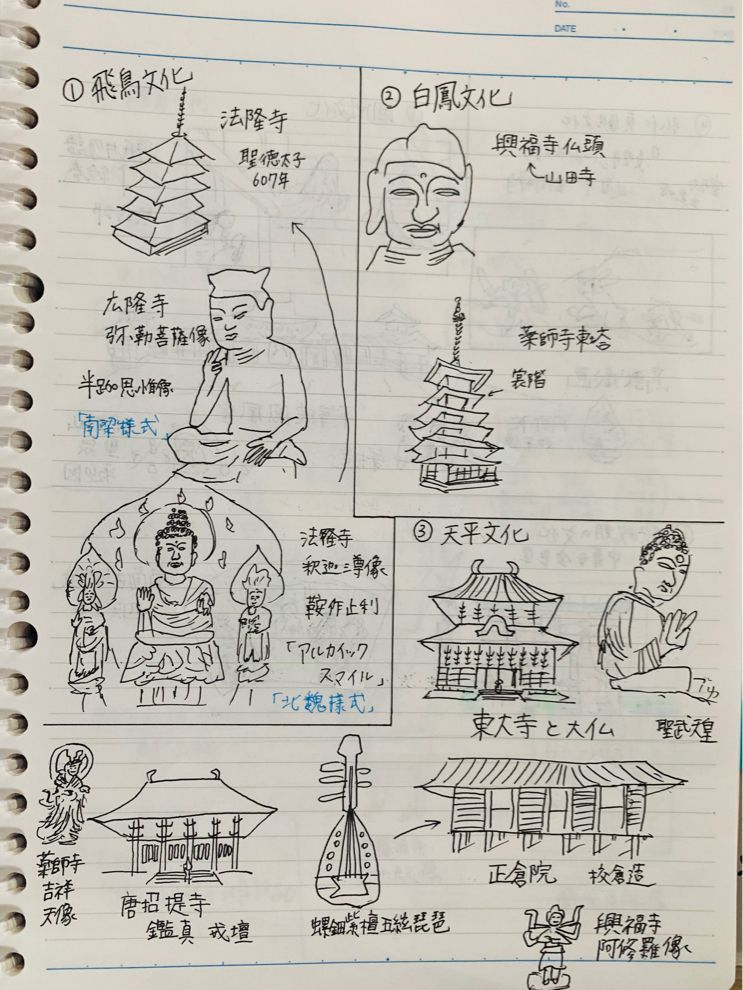 No.
DATE
① 飛鳥文化
法隆寺
聖徳太子
607年
広隆寺
弥勒菩薩像
半跏思惟像
「南梁様式」
法隆寺
釈迦三尊像
鞍作止利
「アルカイック
スマイル」
「北魏様式」
② 白鳳文化
興福寺仏頭
山田寺
薬師寺東塔
裳階
③ 天平文化
東大寺と大仏
聖武天皇
薬師寺
吉祥
天像
唐招提寺
鑑真 戒壇
螺鈿紫檀五絃琵琶
正倉院 校倉造
興福寺
阿修羅像